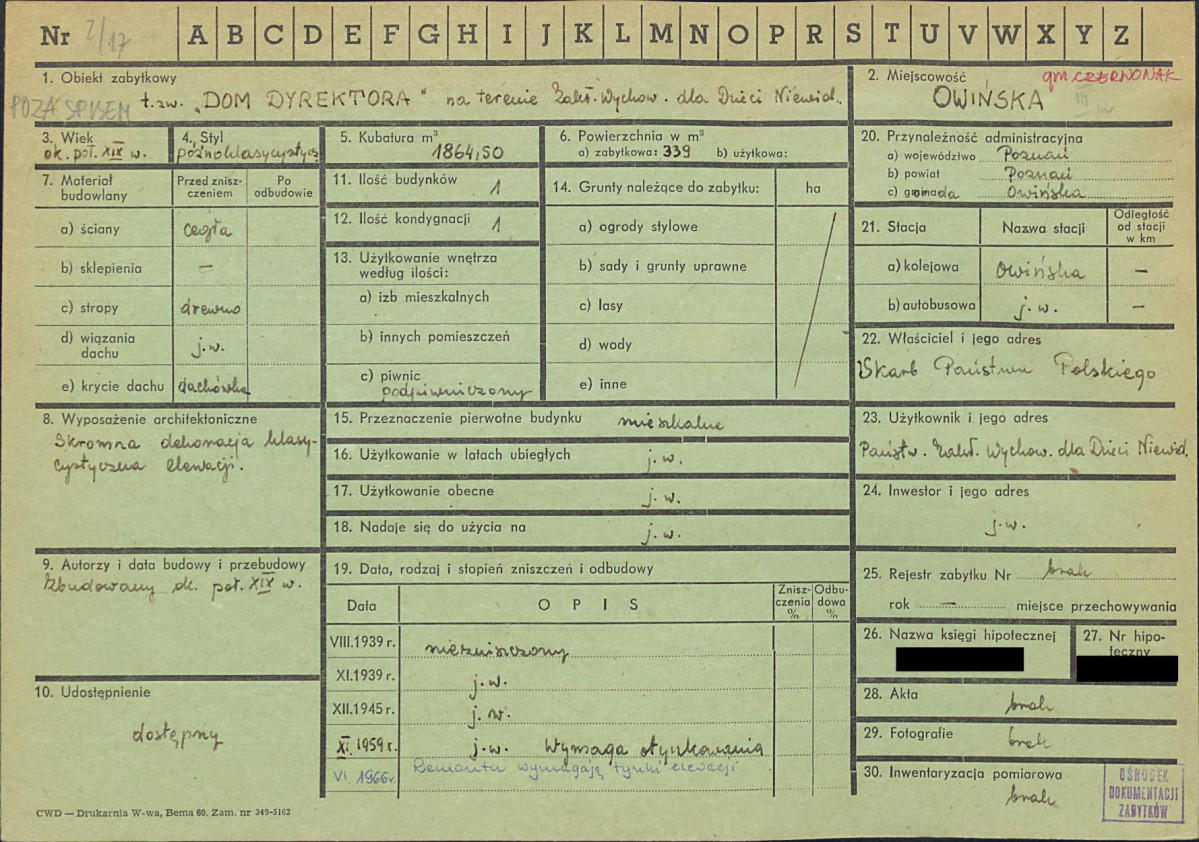 Nr 2/17 A B C D E F G H I J K L M N O P R S T U V W X Y Z
1. Obiekt zabytkowy
POZA SPISEM
t.zw. „DOM DYREKTORA" na terenie Zakł. Wychow. dla Dzieci Niewid.
2. Miejscowość
gm. CZERWONAK
OWIŃSKA
3. Wiek
ok. poł. XIX w.
4. Styl
późnoklasycystycz
5. Kubatura m³
1864,50
6. Powierzchnia w m³
a) zabytkowa: 339 b) użytkowa:
20. Przynależność administracyjna
a) województwo Poznań
b) powiat Poznań
c) gromada Owińska
7. Materiał budowlany
Przed znisz-
czeniem
Po
odbudowie
a) ściany cegła
b) sklepienia —
c) stropy drewno
d) wiązania
dachu j.w.
e) krycie dachu dachówka
11. Ilość budynków 1
12. Ilość kondygnacji 1
13. Użytkowanie wnętrza
według ilości:
a) izb mieszkalnych
b) innych pomieszczeń
c) piwnic
podpiwniczony
14. Grunty należące do zabytku: ha
a) ogrody stylowe
b) sady i grunty uprawne
c) lasy
d) wody
e) inne
21. Stacja Nazwa stacji
Odległość
od stacji
w km
a) kolejowa Owińska —
b) autobusowa j.w. —
22. Właściciel i jego adres
Skarb Państwa Polskiego
8. Wyposażenie architektoniczne
Skromna dekoracja klasy-
cystyczna elewacji.
15. Przeznaczenie pierwotne budynku mieszkalne
16. Użytkowanie w latach ubiegłych j.w.
17. Użytkowanie obecne j.w.
18. Nadaje się do użycia na j.w.
23. Użytkownik i jego adres
Państw. Zakł. Wychow. dla Dzieci Niewid.
24. Inwestor i jego adres
j.w.
9. Autorzy i data budowy i przebudowy
Zbudowany ok. poł. XIX w.
10. Udostępnienie
dostępny
19. Data, rodzaj i stopień zniszczeń i odbudowy
Data OPIS
Znisz-
czenia
%
Odbu-
dowa
%
VIII.1939 r. niezniszczony
XI.1939 r. j.w.
XII.1945 r. j.w.
XI.1959 r. j.w. Wymaga otynkowania
VI.1966r. Remontu wymagają tynki elewacji
25. Rejestr zabytku Nr brak
rok — miejsce przechowywania
26. Nazwa księgi hipotecznej
27. Nr hipo-
teczny
28. Akta brak
29. Fotografie brak
30. Inwentaryzacja pomiarowa
brak
OŚRODEK
DOKUMENTACJI
ZABYTKÓW
CWD — Drukarnia W-wa, Bema 60. Zam. nr 349-5162